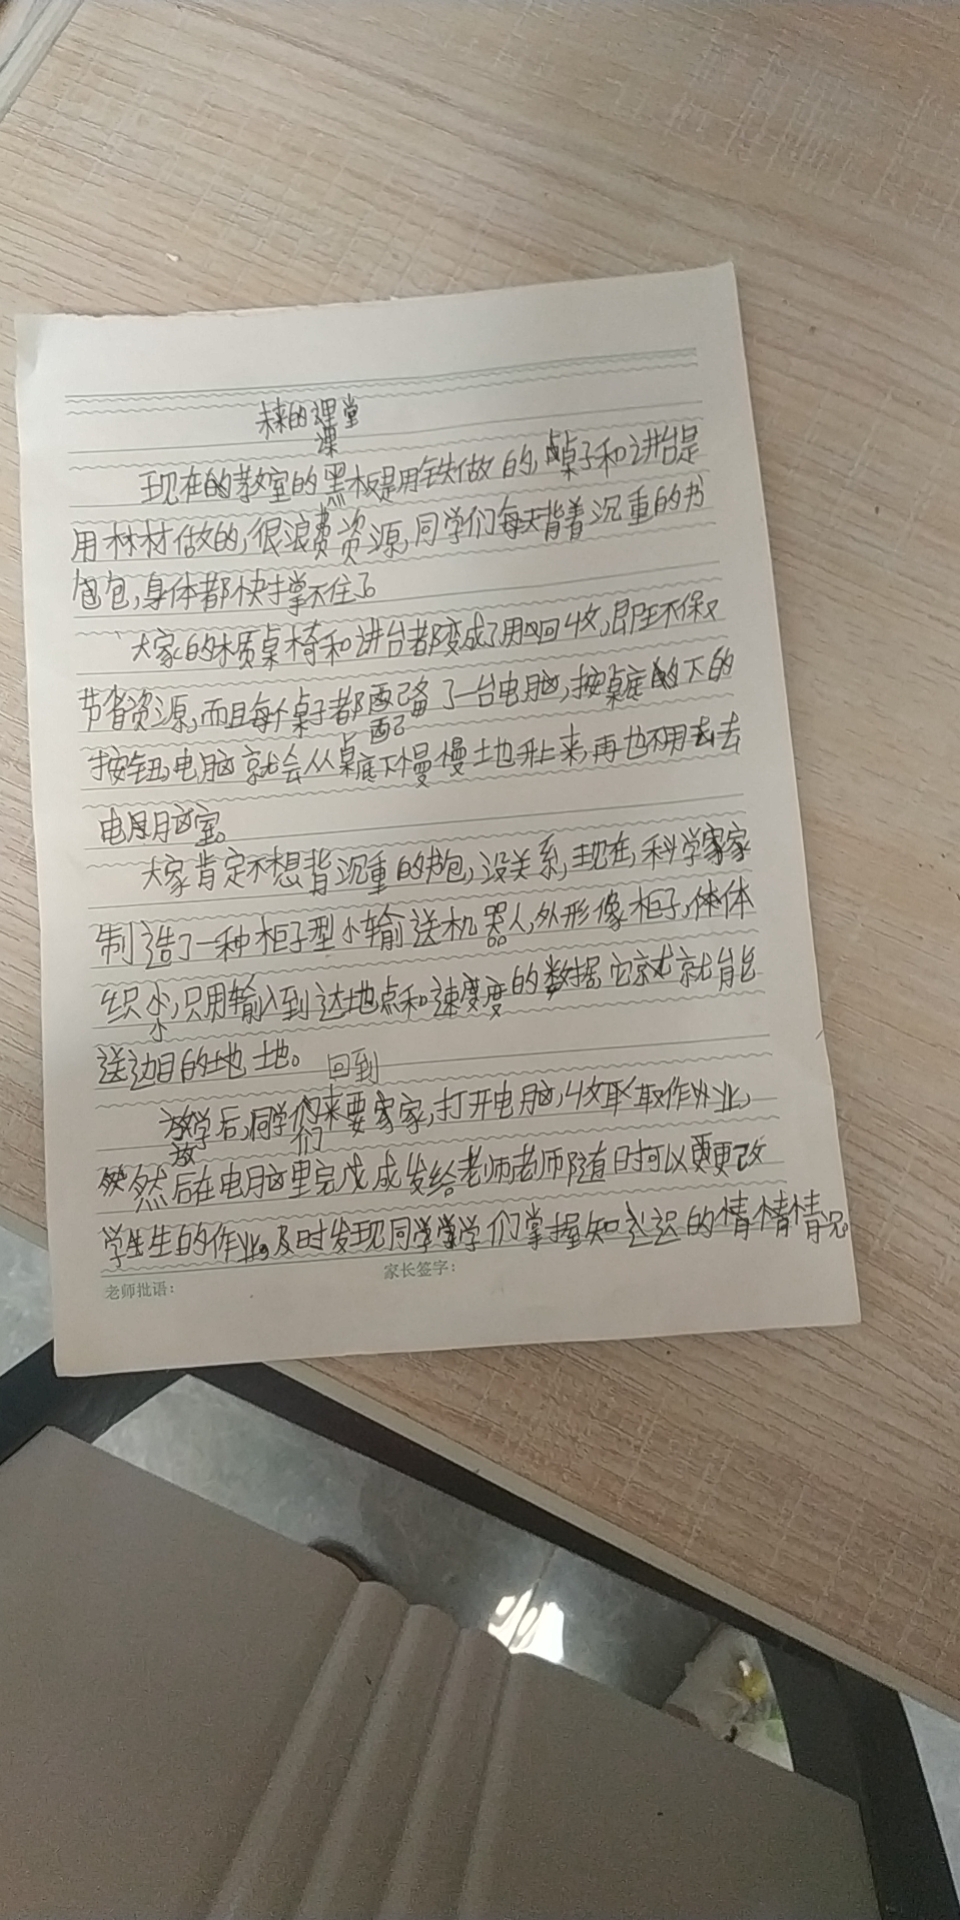 未来的课堂
课
现在的教室的黑板是用铁做的,桌子和讲台是
用木材做的,很浪费资源,同学们每天背着沉重的书
包包,身体都快撑不住了
大家的木质桌椅和讲台都变成了用回收,即环保又
节省资源,而且每个桌子都配备了一台电脑,按桌底的下的
配
按钮,电脑就会从桌底下慢慢土地升上来,再也不用去去
电脑室。
大家肯定不想背沉重的书包,没关系,现在,科学家家
制造了一种柜子型小输送机器人,外形像柜子,体体
积小,只用输入到达地点和速度度的数据,它就就能
小
送边目的地地。
回到
放学后,同学们来要家家,打开电脑,收取取作业业,
放 们
然然后在电脑里完成成发给老师老师随时可以更更改
学生生的作业。及时发现同学学学们掌握知识识的情情情况。
家长签字:
老师批语: